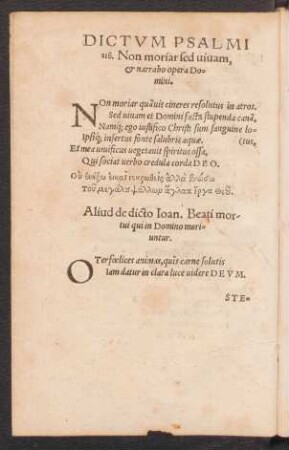 DICTVM PSALMI
118. Non moriar sed uiuam,
& narrabo opera Do-
mini.
NOn moriar quãuis cineres resolutus in atros.
Sed uiuam et Domini facta stupenda canã,
Namq; ego iustifico Christi sum sanguine lo-
Ipsiq; insertus fonte salubris aquæ. (tus,
Et mea uiuificus uegetauit spiritus ossa,
Qui sociat uerbo credula corda DEO.
Τοῦ μεγάλα ψάλλων ἀγλαὰ ἔργα θεοῦ.
Aliud de dicto Ioan. Beati mor-
tui qui in Domino mori-
untur.
O Ter fœlices animæ, quîs carne solutis
Iam datur in clara luce uidere DEVM.
STE-